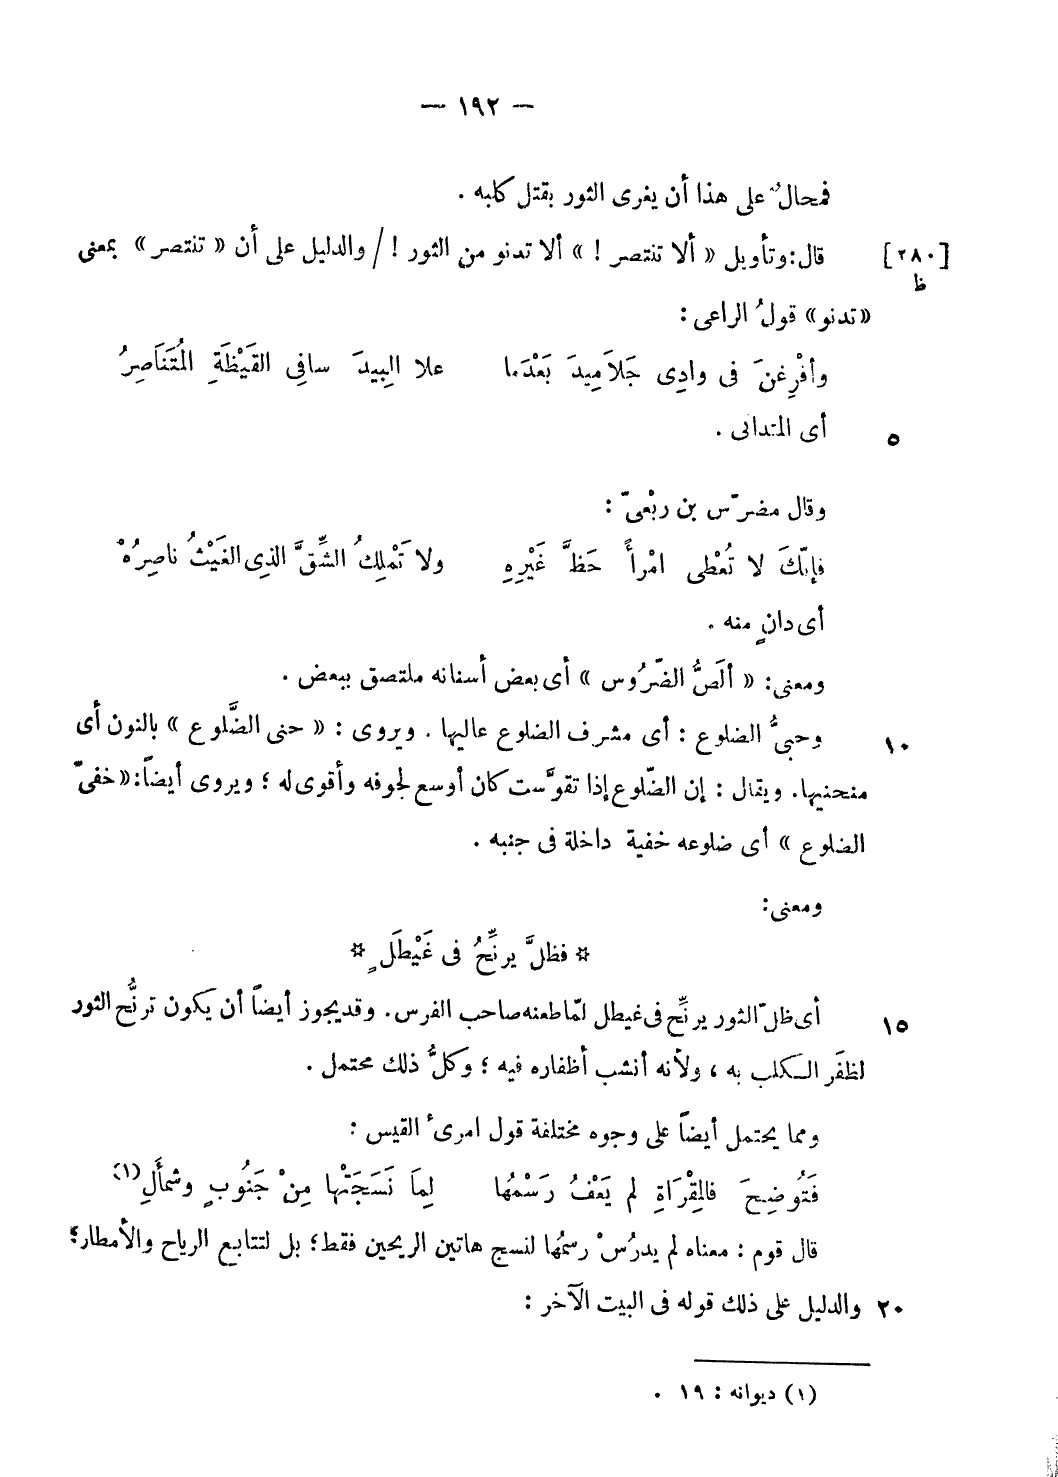 — ١٩٢ —
فمحالٌ على هذا أن يغرى الثور بقتل كلبه .
[٢٨٠] قال: وتأويل « ألا تنتصر ! » ألا تدنو من الثور ! / والدليل على أن « تنتصر » بمعنى
ظ
«تدنو» قولُ الراعى :
وأفْرِغنَ فى وادِى جَلاَمِيدَ بَعْدَما علا البِيدَ سافِى القَيْظَةِ المُتَنَاصِرُ
٥ أى المتدانى .
وقال مضرّس بن ربْعىّ :
فإنّكَ لا تُعْطِى امْرأً حَظَّ غَيْرِهِ ولا تَمْلِكُ الشِّقَّ الذِى الغَيْثُ ناصِرُهْ
أى دانٍ منه .
ومعنى: « ألَصُّ الضّرُوس » أى بعض أسنانه ملتصق ببعض .
١٠ وحبىُّ الضلوع : أى مشرف الضلوع عاليها . ويروى : « حنى الضَّلوع » بالنون أى
منحنيها. ويقال : إن الضّلوع إذا تقوَّست كان أوسع لجوفه وأقوى له ؛ ويروى أيضاً: «خفىّ
الضلوع » أى ضلوعه خفية داخلة فى جنبه .
ومعنى:
* فظلَّ يرنِّحُ فى غَيْطَلٍ *
١٥ أى ظلّ الثور يرنِّح فى غيطل لمّا طعنه صاحب الفرس. وقد يجوز أيضاً أن يكون ترنُّح الثور
لظفَر الكلب به ، ولأنه أنشب أظفاره فيه ؛ وكلُّ ذلك محتمل .
ومما يحتمل أيضاً على وجوه مختلفة قول امرئ القيس :
فَتُوضِحَ فالمِقْرَاةِ لم يَعْفُ رَسْمُها لِمَا نَسَجَتْها مِنْ جَنُوبٍ وشمأَلِ(١)
قال قوم : معناه لم يدرُسْ رسمُها لنسج هاتين الريحين فقط؛ بل لتتابع الرياح والأمطار؛
٢٠ والدليل على ذلك قوله فى البيت الآخر :
(١) ديوانه : ١٩ .